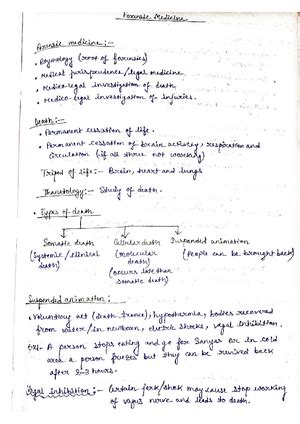 Forensic Medicine
Forensic medicine:-
(root of forensics)
• Medical jurisprudence/legal medicine
• Medico-legal investigation of death
• Medico-legal investigation of injuries.
Death:-
• Permanent cessation of life.
• Permanent cessation of brain activity, respiration and
circulation (if all three not working)
Tripod of life:- Brain, heart and lungs
Thanatology:- Study of death.
• Types of death
Somatic death Cellular death Suspended animation
(Systemic/clinical (molecular (People can be brought back)
death) death)
(occurs less than
somatic death)
Suspended animation:
• Voluntary act (death trance), hypothermia, bodies recovered
from water/in newborn, electric shocks, vagal inhibition.
A person stops eating and go for or in cold
area a person freezes but they can be revived back
after 2-3 hours.
Vagal inhibition:- Certain shock may cause stop working
of vagus nerve and leads to death.